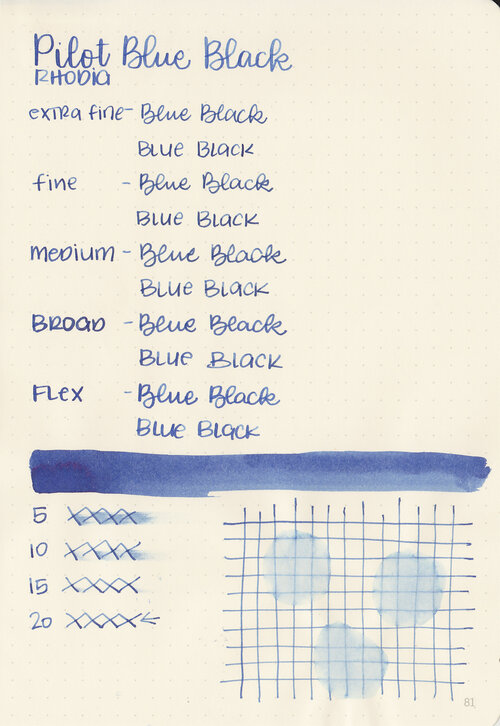 Pilot Blue Black
RHODIA
extra fine - Blue Black
Blue Black
fine - Blue Black
Blue Black
medium - Blue Black
Blue Black
Broad - Blue Black
Blue Black
Flex - Blue Black
Blue Black
5 XXXX
10 XXXX
15 XXXX
20 XXXX ←
81